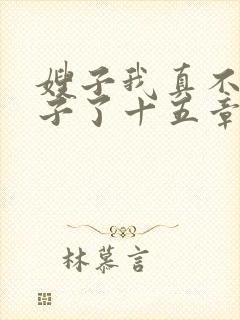 嫂子我真不
子了十五章
林慕言